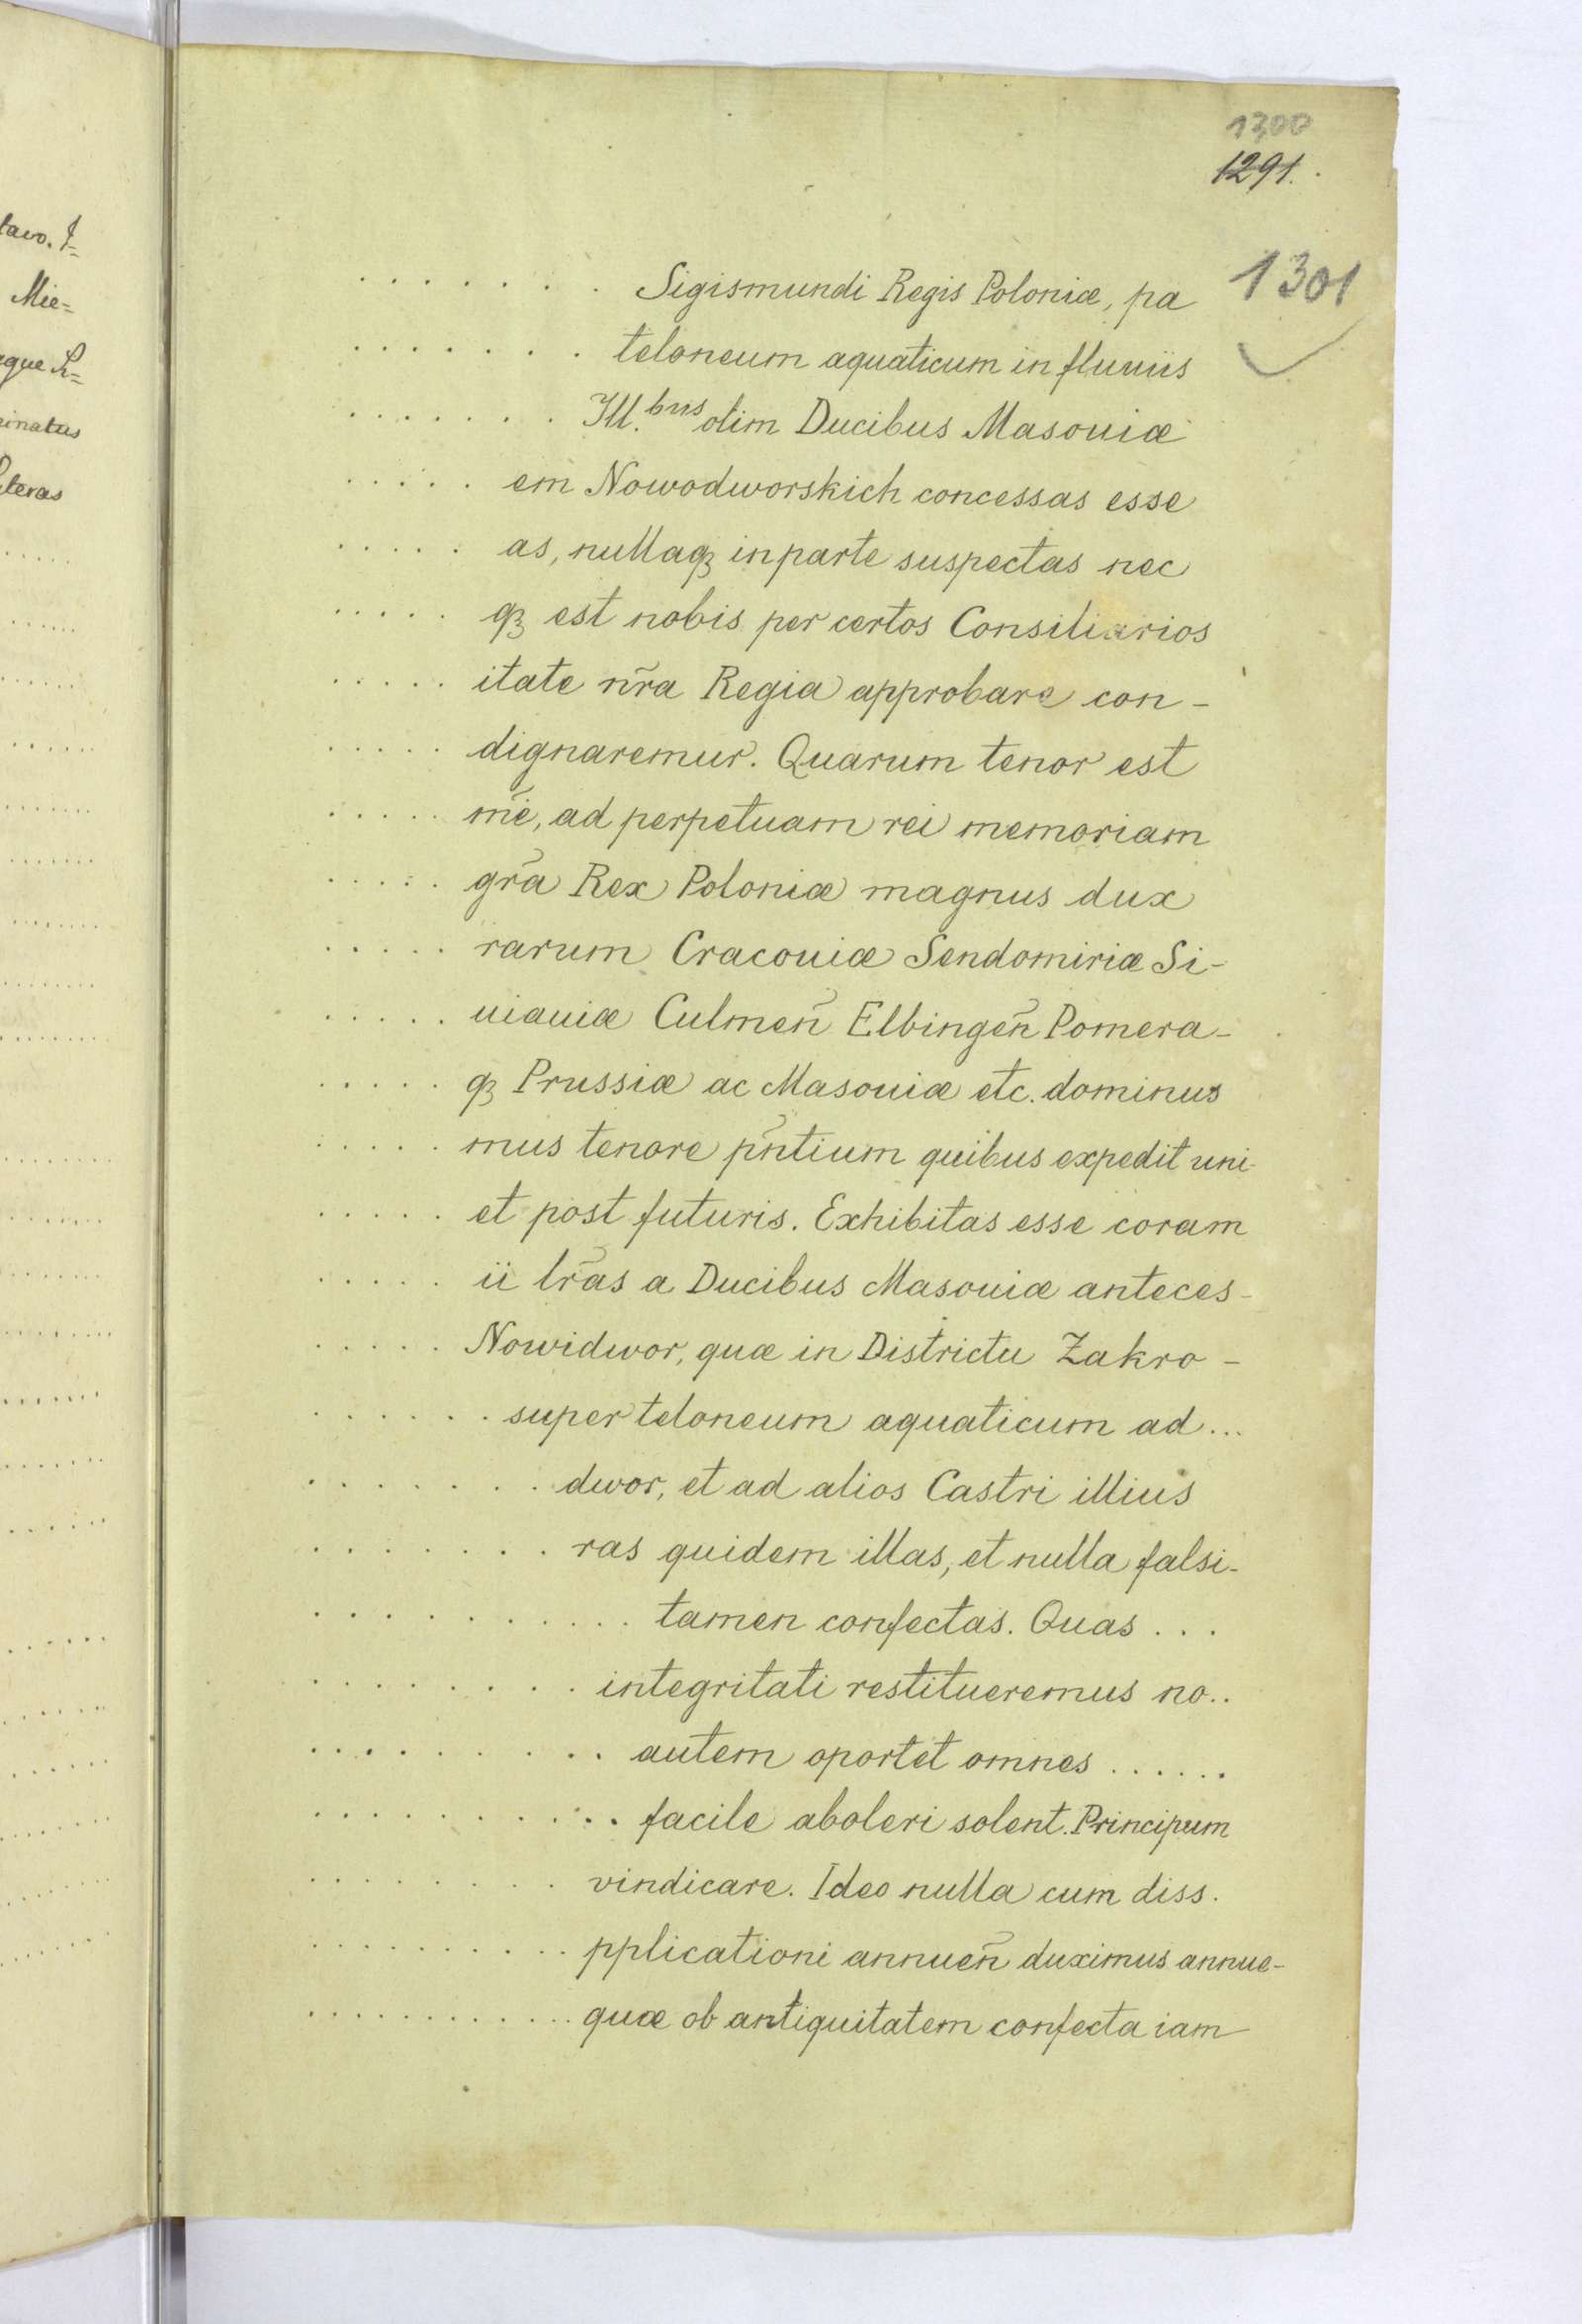 1300
1291.
1301
. . . . . . . Sigismundi Regis Poloniæ, pa
. . . . . . . teloneum aquaticum in fluuiis
. . . . . . . Ill.bus olim Ducibus Masouiæ
. . . . . em Nowodworskich concessas esse
. . . . . as, nullaqꝫ in parte suspectas nec
. . . . . qꝫ est nobis per certos Consiliarios
. . . . . itate nr̃a Regia approbare con-
. . . . . dignaremur. Quarum tenor est
. . . . . m̃e, ad perpetuam rei memoriam
. . . . . gr̃a Rex Poloniæ magnus dux
. . . . . rarum Cracouiæ Sendomiriæ Si-
. . . . . uiauiæ Culmeñ Elbingeñ Pomera-
. . . . . qꝫ Prussiæ ac Masouiæ etc. dominus
. . . . . mus tenore pñtium quibus expedit uni-
. . . . . et post futuris. Exhibitas esse coram
. . . . . ii lr̃as a Ducibus Masouiæ anteces-
. . . . . Nowidwor, quæ in Districtu Zakro-
. . . . . . super teloneum aquaticum ad...
. . . . . . . dwor, et ad alios Castri illius
. . . . . . . ras quidem illas, et nulla falsi-
. . . . . . . . . . tamen confectas. Quas . . .
. . . . . . . . . integritati restitueremus no..
. . . . . . . . . autem oportet omnes . . . . . .
. . . . . . . . . . facile aboleri solent. Principum
. . . . . . . . vindicare. Ideo nulla cum diss.
. . . . . . . . . . pplicationi annueñ duximus annue-
. . . . . . . . . . . quæ ob antiquitatem confecta iam
tavo. I=
Mie=
ninatus
iteras